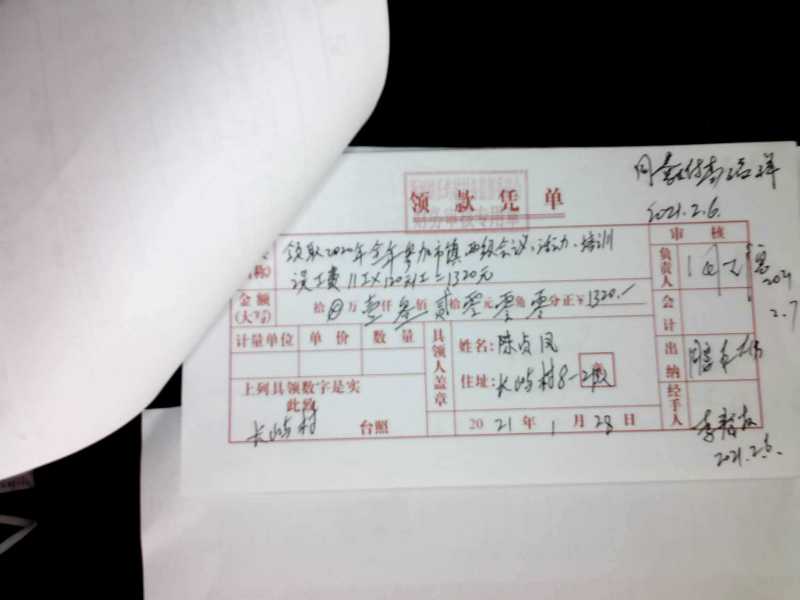 2021.2.6.
领款凭单
财务审核专用章
审核
领取2020年全年参加市镇两级会议、活动、培训
误工费11工×120元/工=1320元
负责人
2021
2.7
金额
(大写)
拾 万壹仟叁佰贰拾零元零角零分正¥1320.-
会计
计量单位 单价 数量
具领人盖章
姓名:陈贞凤
住址:长屿村8-2
出纳
上列具领数字是实
此致
长屿村 台照
2021年1月28日
经手人
2021.2.6.